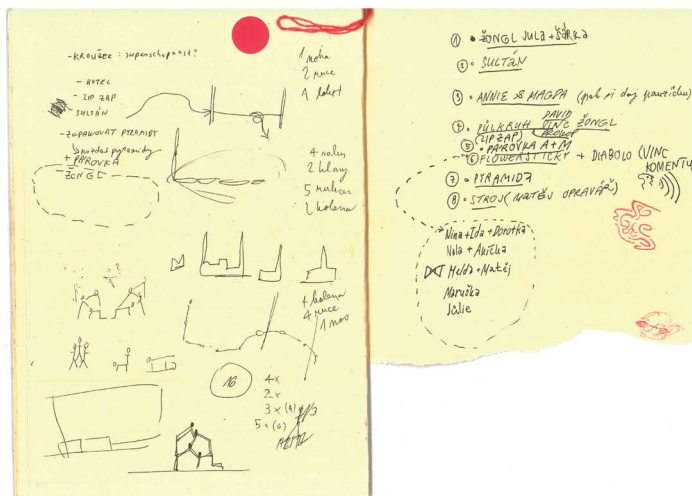 - KROUŽEK : superschopnost?
- HOTEL
- ZIP ZAP
- SULTÁN
- ZOPAKOVAT PYRAMIDY
+ PÁROVKA
- ŽONGL
1 noha
2 ruce
1 loket
4 nohy
2 hlavy
5 rukou
2 kolena
4 kolena
4 ruce
1 nos
16
4x
2x
3x (4)
5x (6)
1 • ŽONGL JULA + ŠÁRKA
2 • SULTÁN
3 • ANNIE & MAGDA (pak si daj pauzičku)
DAVID
4 • PŮLKRUH VINC ŽONGL
(ZIP ZAP) PROKOP
5 • PÁROVKA A+M
6 FLOWERSTICKY + DIABOLO (VINC
KOMENTUJ
7 • PYRAMIDA
8 • STROJ (MATĚJ OPRAVÁŘ)
Nina + Ida + Dorotka
Nela + Anička
Melda + Matěj
Maruška
Júlie